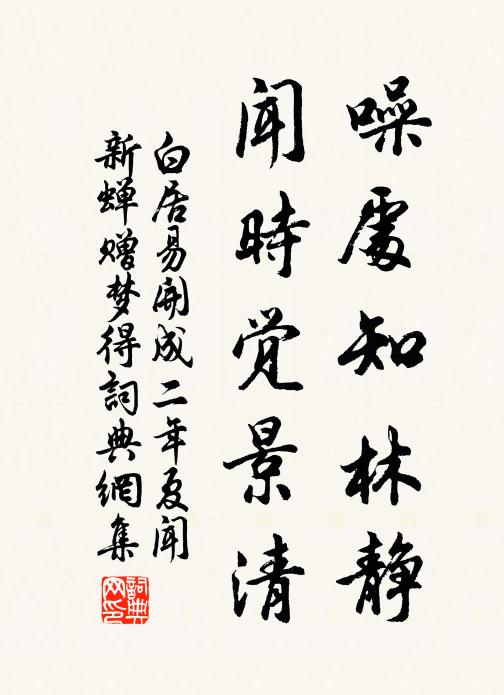 噪處知林静
聞時覺景清
白居易開成二年夏聞
新蝉贈梦得詞典網集
詞典
网印